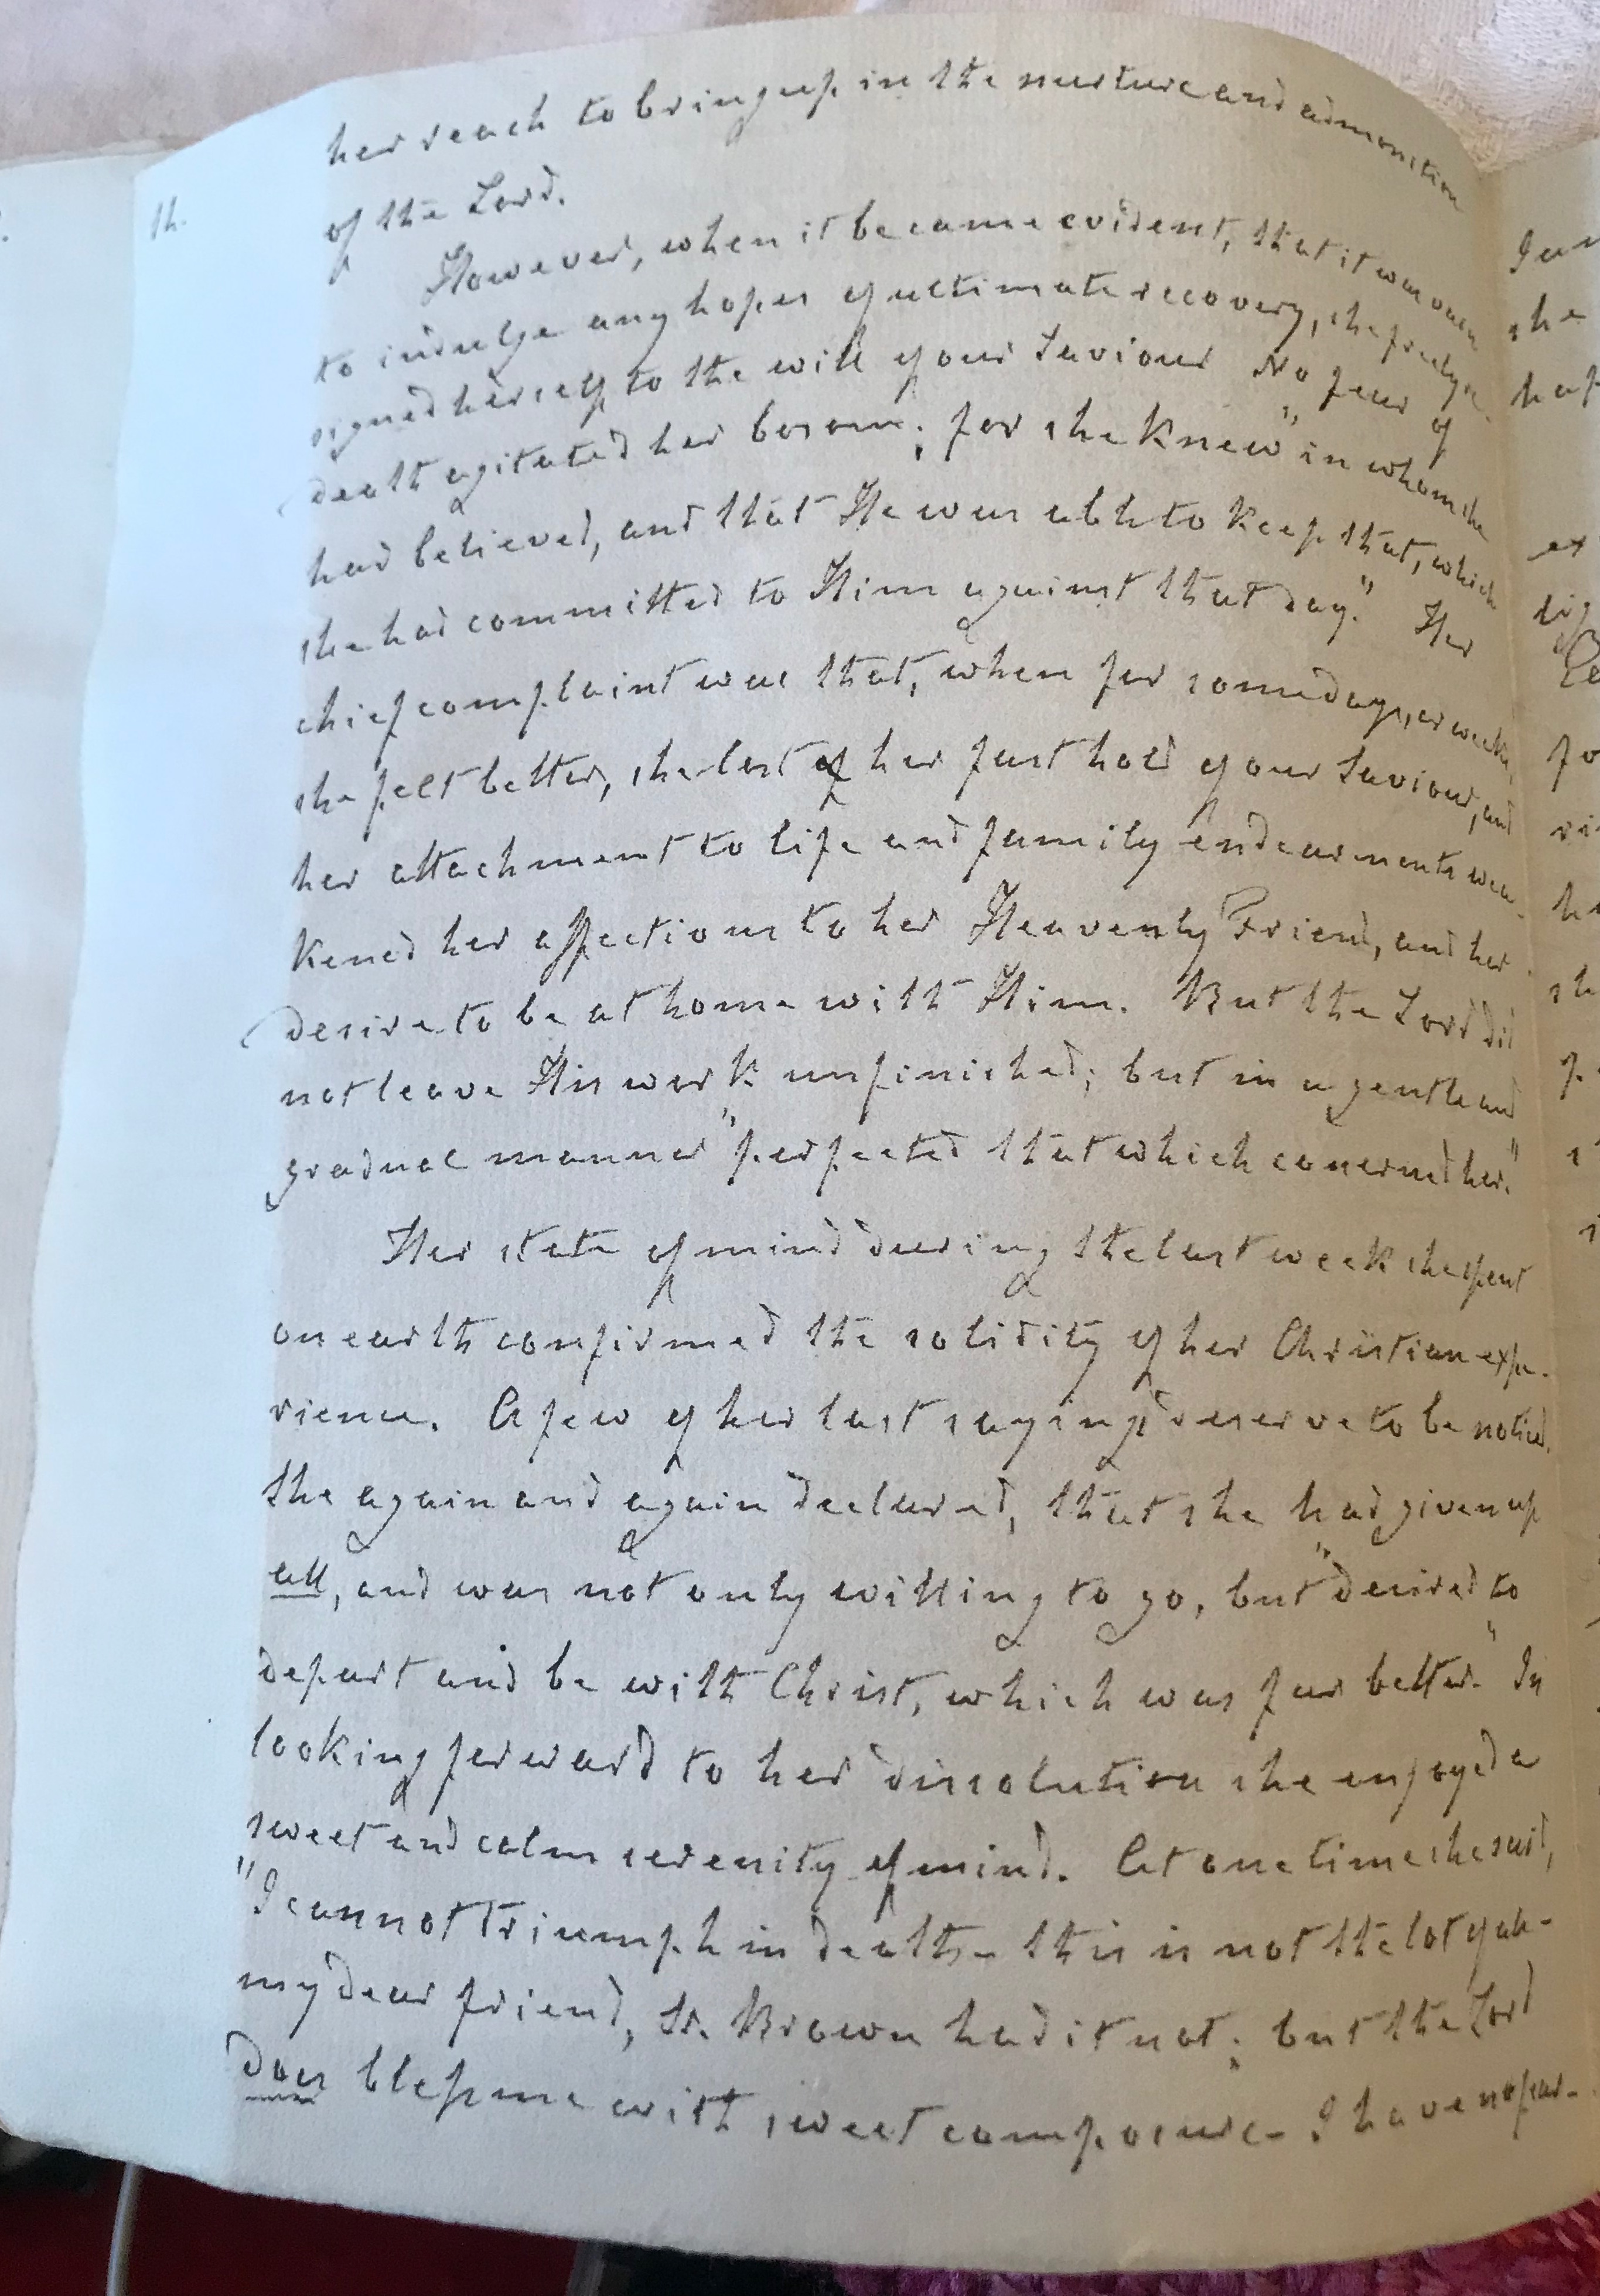 16.
her reach to bring up in the nurture and admonition
of the Lord.
However, when it became evident, that it was vain
to indulge any hopes of ultimate recovery, she freely re-
signed herself to the will of our Saviour No fear of
death agitated her bosom; for she knew "in whom she
had believed, and that He was able to keep that, which
she had committed to Him against that day." Her
chief complaint was that, when for some days, or weeks,
she felt better, she lost of her fast hold of our Saviour, and
her attachment to life and family endearments wea-
kened her affections to her Heavenly Friend, and her
desire to be at home with Him. But the Lord did
not leave His work unfinished; but in a gentle and
gradual manner "perfected that which concerned her."
Her state of mind during the last week she spent
on earth confirmed the solidity of her Christian expe-
rience. A few of her last sayings deserve to be noticed.
She again and again declared, that she had given up
all, and was not only willing to go, but "desired to
depart and be with Christ, which was far better." In
looking forward to her dissolution she enjoyed a
sweet and calm serenity of mind. At one time she said,
"I cannot triumph in death - this is not the lot of all -
my dear friend, Sr. Brown had it not; but the Lord
does bless me with sweet composure - I have no fear -